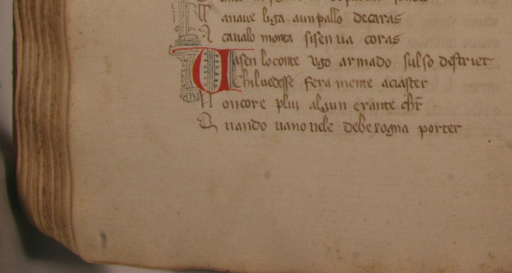 naue liga aun pallo de caras
A caualo monta sisen ua coras
Vasen lo conte ugo armado sul so destrier
Chil uedesse fera mente aciaster
Non core plui algun erante chr
Quando uano uele de bexogna porter